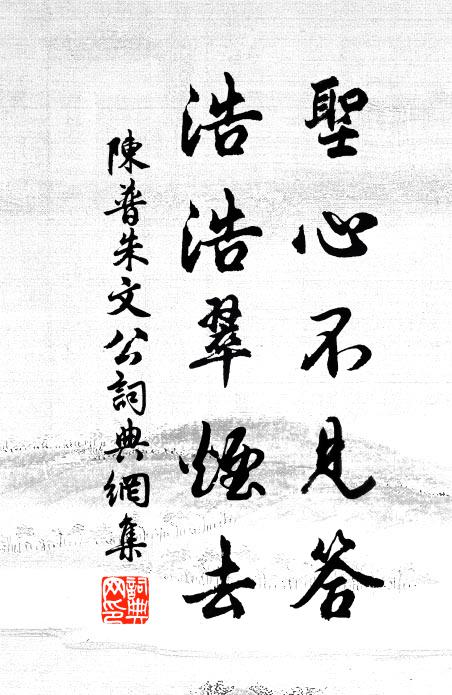 聖心不見答
浩浩翠煙去
陳普朱文公詞典網集
詞典網印